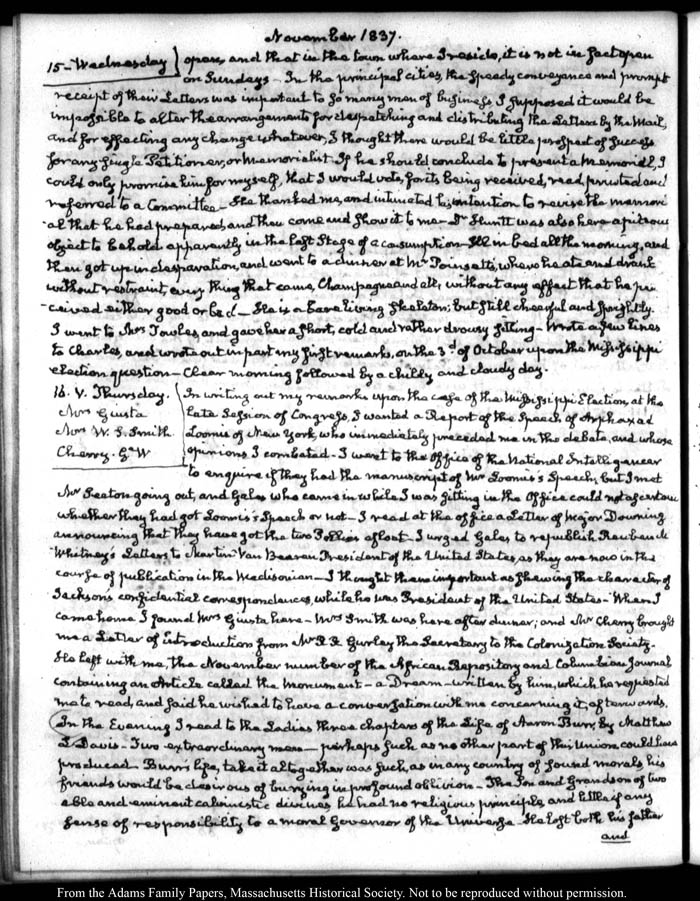 November 1837.
15 - Wednesday } open, and that in the town where I reside, it is not in fact open
on Sundays - In the principal cities, the speedy conveyance and prompt
receipt of their Letters was important to so many men of business I supposed it would be
impossible to alter the arrangements for despatching and distributing the Letters by the Mail,
and for effecting any change whatever, I thought there would be little prospect of success
for any single Petitioner, or Memorialist. If he should conclude to present a Memorial, I
could only promise him for myself, that I would vote, for its being received, read printed and
referred to a Committee - He thanked me, and intimated his intention to revise the memori
-al that he had prepared, and then come and show it to me - Dr Huntt was also here a piteous
object to behold apparently in the last Stage of a consumption - Ill in bed all the morning, and
then got up in desparation, and went to a dinner at Mr Poinsett's, where he ate and drank
without restraint, every thing that came, Champagne and all, without any effect that he per
-ceived either good or bad - He is a bare living skeleton; but still cheerful and sprightly.
I went to Mrs Towles, and gave her a short, cold and rather drowsy sitting - Wrote a few lines
to Charles, and wrote out in part my first remarks, on the 3d of October upon the Mississippi
election question - Clear morning followed by a chilly and cloudy day.
16. V. Thursday.
Mrs Giusta
Mrs W. S. Smith.
Cherry. G W
In writing out my remarks upon the case of the Mississippi Election, at the
late Session of Congress, I wanted a Report of the Speech of Arphaxad
Loomis of New York, who immediately preceded me in the debate, and whose
opinions I combated - I went to the Office of the National Intelligencer
to enquire if they had the manuscript of Mr Loomis's Speech, but I met
Mr Seaton going out, and Gales who came in while I was sitting in the Office could not ascertain
whether they had got Loomis's Speech or not - I read at the office a Letter of Major Downing
announcing that they have got the two Pollies afloat - I urged Gales to republish Reuben M
Whitney's Letters to Martin Van Beuren President of the United States, as they are now in the
course of publication in the Madisonian - I thought them important as shewing the character of
Jackson's confidential correspondences, while he was President of the United States - When I
came home I found Mrs Giusta here - Mrs Smith was here after dinner; and Mr Cherry brought
me a Letter of Introduction from Mr R. R. Gurley the Secretary to the Colonization Society.
He left with me, the November number of the African Repository and Columbian Journal
containing an Article called the Monument - a Dream - written by him, which he requested
me to read, and said he wished to have a conversation with me concerning it, afterwards.
In the Evening I read to the Ladies three chapters of the Life of Aaron Burr, by Matthew
L Davis - Two extraordinary men - perhaps such as no other part of this Union, could have
produced - Burr's life, take it altogether was such, as in any country of sound morals his
friends would be desirous of burying in profound oblivion - The Son and Grandson of two
able and eminent calvinistic divines, he had no religious principle, and little if any
sense of responsibility to a moral Governor of the Universe - He lost both his father
and
From the Adams Family Papers, Massachusetts Historical Society. Not to be reproduced without permission.